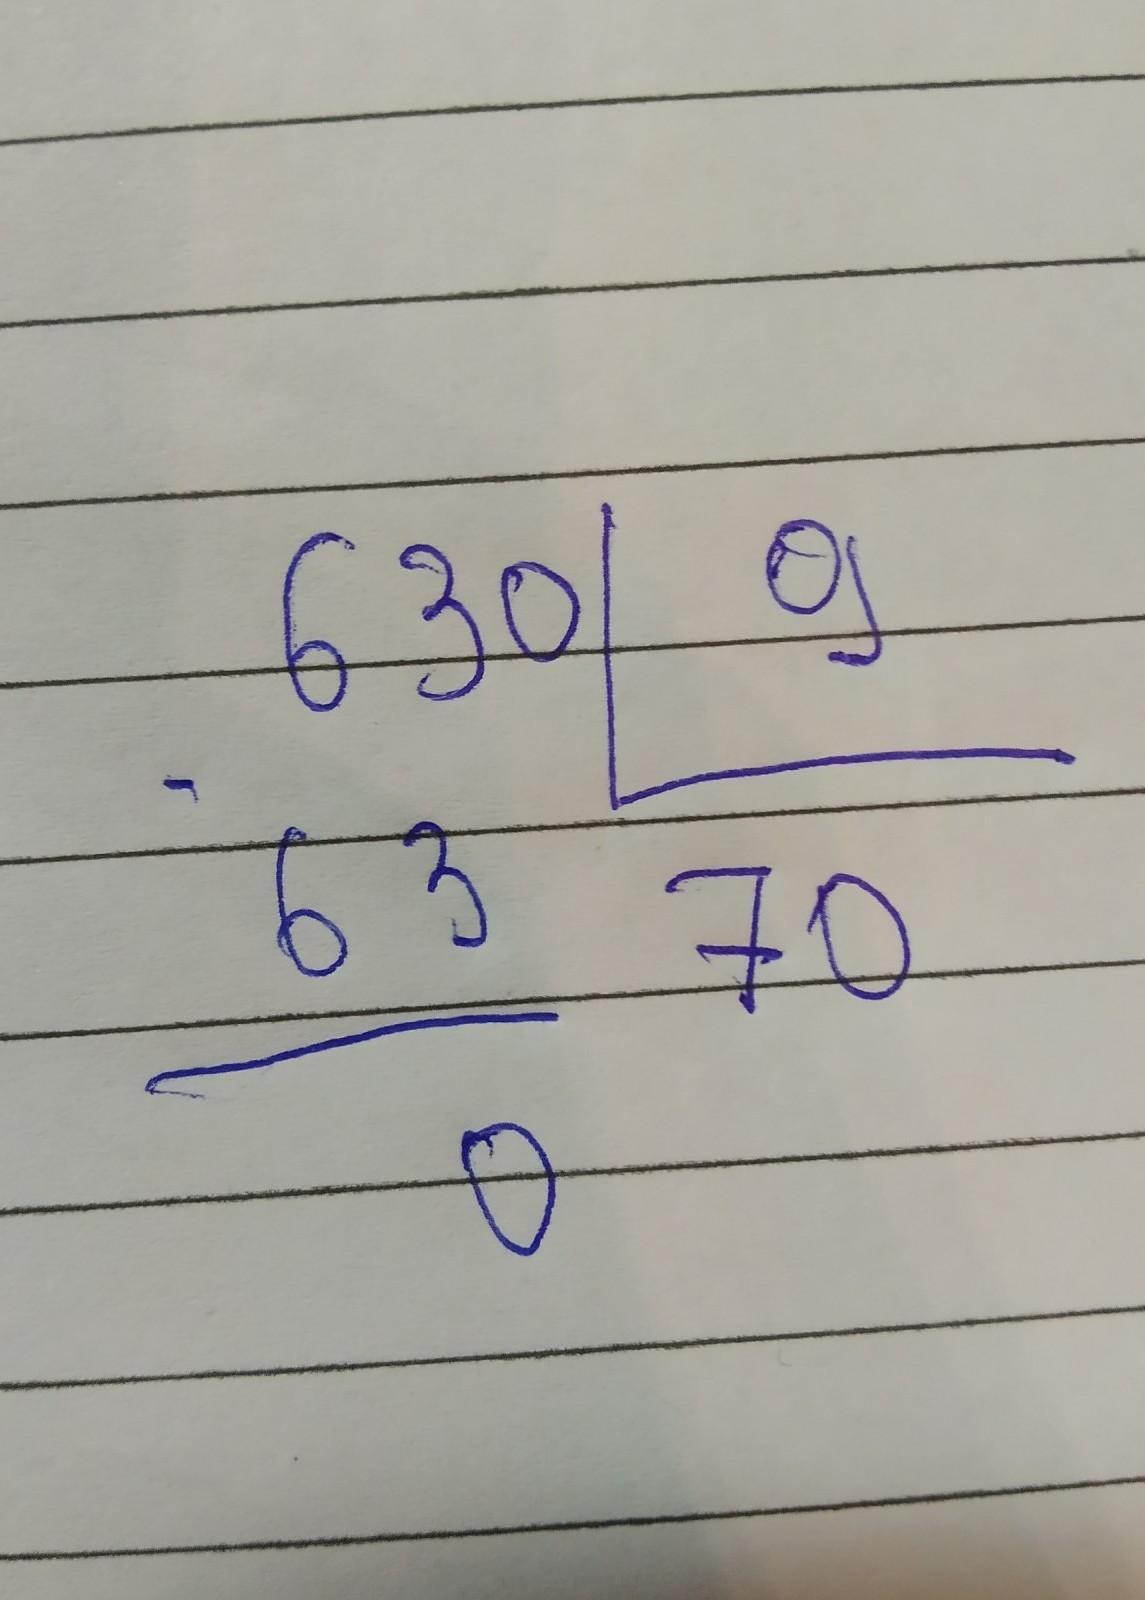 630 | 9
- 63 70
0